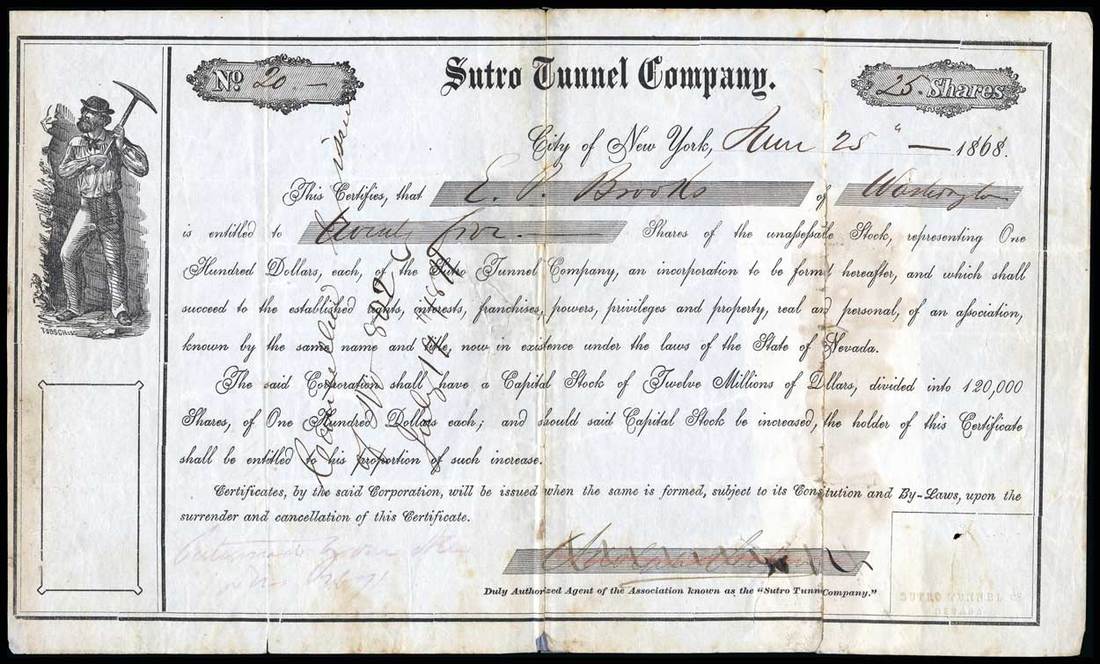 No. 20.—
Sutro Tunnel Company.
25. Shares
City of New York, June 25" — 1868.
This Certifies, that E. P. Brooks of Washington
is entitled to twenty five — Shares of the unassessable Stock, representing One
Hundred Dollars, each, of the Sutro Tunnel Company, an incorporation to be formed hereafter, and which shall
succeed to the established rights, interests, franchises, powers, privileges and property, real and personal, of an association,
known by the same name and title, now in existence under the laws of the State of Nevada.
The said Corporation shall have a Capital Stock of Twelve Millions of Dollars, divided into 120,000
Shares, of One Hundred Dollars each; and should said Capital Stock be increased, the holder of this Certificate
shall be entitled to his proportion of such increase.
Certificates, by the said Corporation, will be issued when the same is formed, subject to its Constitution and By-Laws, upon the
surrender and cancellation of this Certificate.
Duly Authorized Agent of the Association known as the "Sutro Tunnel Company."
Cancelled
July 18th
SUTRO TUNNEL CO
NEVADA